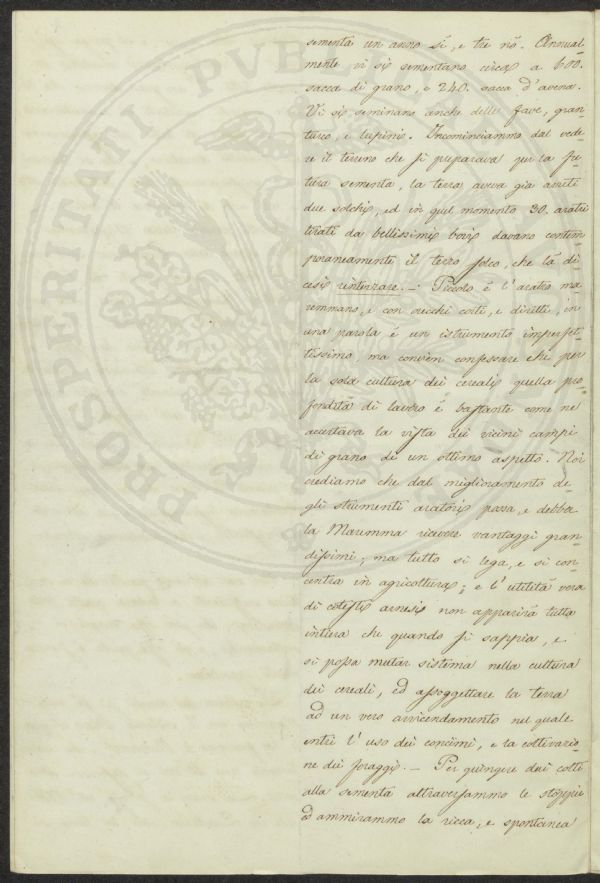 PROSPERITATI PUBLICAE
sementa un anno si, e tre nò. Annual-
mente vi si sementano circa a 600.
sacca di grano, e 240. sacca d'avena.
Vi si seminano anche delle fave, gran-
turco, e lupini. Incominciammo dal vede-
re il terreno che si preparava per la fu-
tura sementa, la terra aveva già avuti
due solchi, ed in quel momento 30. aratri
tirati da bellissimi bovi davano contem-
poraneamente il terzo solco, che là di-
cesi rinterzare. — Piccolo è l'aratro ma-
remmano, e con orecchi corti, e diritti, in
una parola è un istrumento imperfet-
tissimo, ma convien confessare che per
la sola cultura dei cereali quella pro-
fondità di lavoro è bastante come ne
accertava la vista dei vicini campi
di grano di un ottimo aspetto. Noi
crediamo che dal miglioramento de-
gli strumenti aratori possa, e debba
la Maremma ricevere vantaggi gran-
dissimi; ma tutto si lega, e si con-
centra in agricoltura; e l'utilità vera
di cotesti arnesi non apparirà tutta
intera che quando si sappia, e
si possa mutar sistema nella cultura
dei cereali, ed assoggettare la terra
ad un vero avvicendamento nel quale
entri l'uso dei concimi, e la coltivazio-
ne dei foraggi. — Per giungere dai colti
alla sementa attraversammo le stoppie
ed ammirammo la ricca, e spontanea